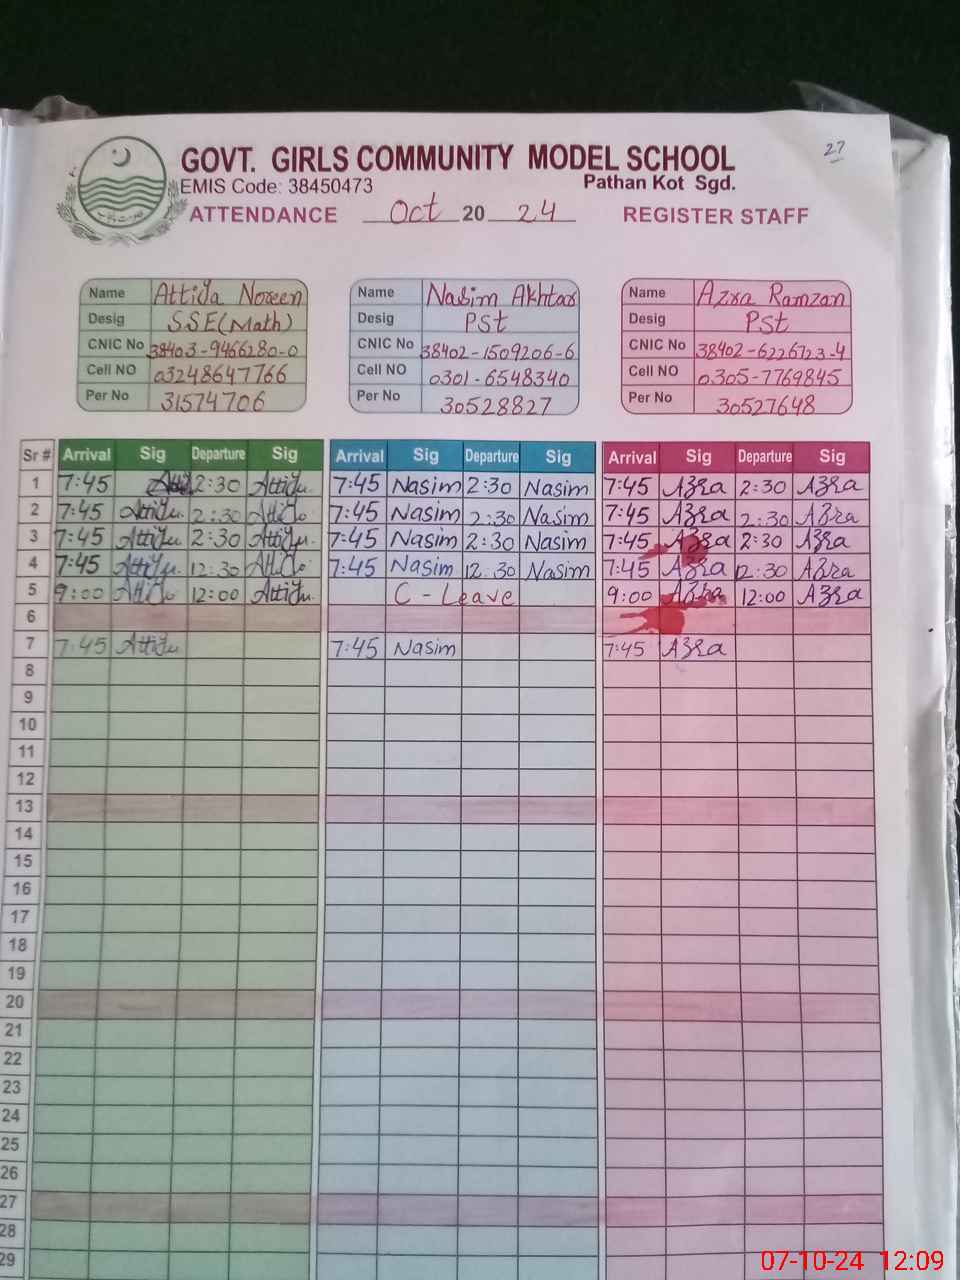 27
GOVT. GIRLS COMMUNITY MODEL SCHOOL
EMIS Code: 38450473 Pathan Kot Sgd.
ATTENDANCE Oct 20 24 REGISTER STAFF
Name Attiya Noreen Name Nasim Akhtar Name Azra Ramzan
Desig SSE(Math) Desig PSt Desig PSt
CNIC No 38403-9466280-0 CNIC No 38402-1509206-6 CNIC No 38402-6226723-4
Cell NO 03248647766 Cell NO 0301-6548340 Cell NO 0305-7769845
Per No 31574706 Per No 30528827 Per No 30527648
Sr # Arrival Sig Departure Sig Arrival Sig Departure Sig Arrival Sig Departure Sig
1 7:45 2:30 Attiya 7:45 Nasim 2:30 Nasim 7:45 Azra 2:30 Azra
2 7:45 Attiya 2:30 Attiya 7:45 Nasim 2:30 Nasim 7:45 Azra 2:30 Azra
3 7:45 Attiya 2:30 Attiya 7:45 Nasim 2:30 Nasim 7:45 Azra 2:30 Azra
4 7:45 Attiya 12:30 Attiya 7:45 Nasim 12.30 Nasim 7:45 Azra 12:30 Azra
5 9:00 Attiya 12:00 Attiya C - Leave 9:00 Azra 12:00 Azra
6
7 7:45 Attiya 7:45 Nasim 7:45 Azra
8
9
10
11
12
13
14
15
16
17
18
19
20
21
22
23
24
25
26
27
28
29
07-10-24 12:09